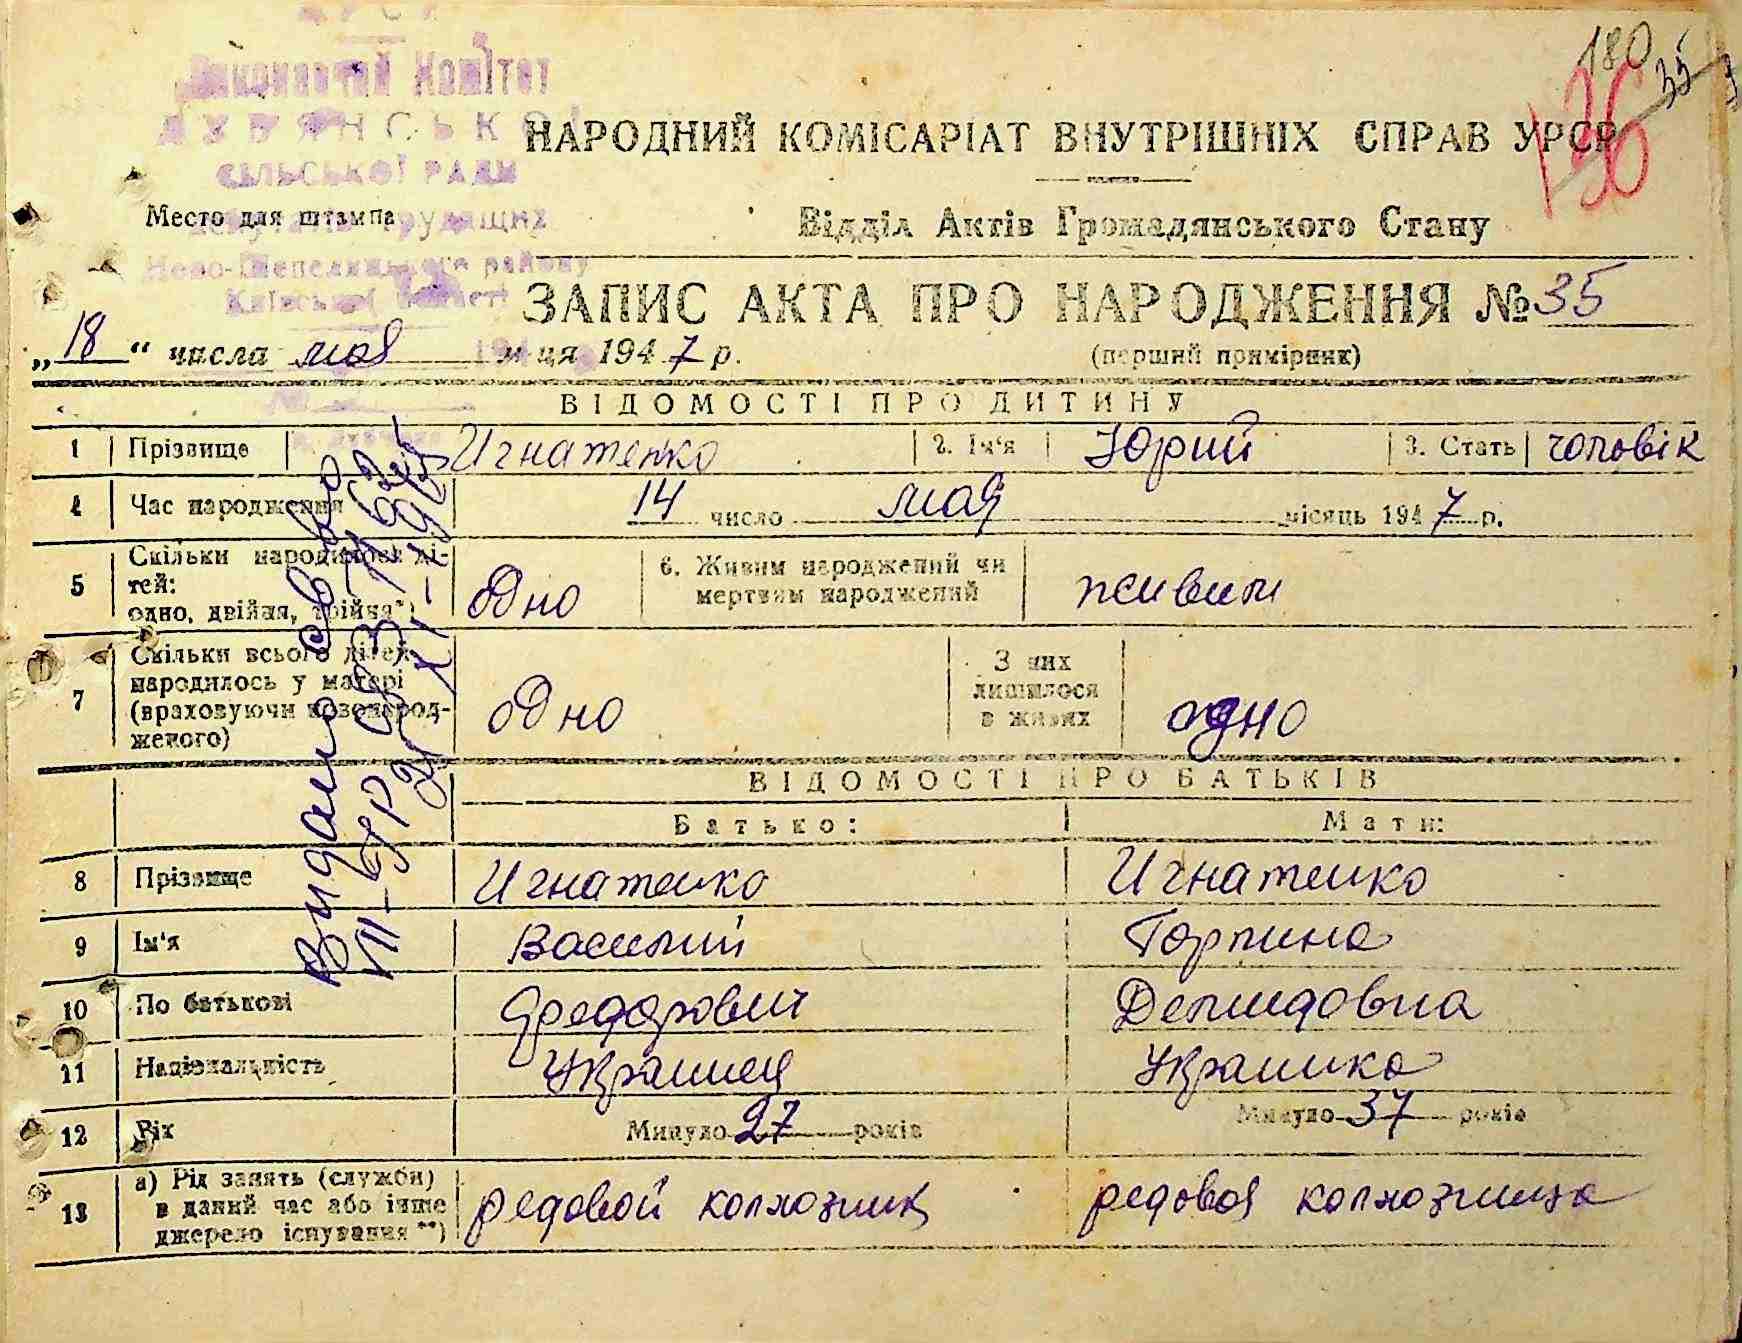 УРСР
Виконавчий Комітет
ЛУБЯНСЬКОЇ
СІЛЬСЬКОЇ РАДИ
депутатів трудящих
Ново-Шепелицького району
Київської області
180
35
136
НАРОДНИЙ КОМІСАРІАТ ВНУТРІШНІХ СПРАВ УРСР
Место для штампа
Відділ Актів Громадянського Стану
ЗАПИС АКТА ПРО НАРОДЖЕННЯ № 35
„18“ числа мая м-ця 1947 р.
(перший примірник)
ВІДОМОСТІ ПРО ДИТИНУ
1 Прізвище Игнатенко 2. Ім'я Юрий 3. Стать чоловік
4 Час народження 14 число мая місяць 1947 р.
5 Скільки народилося ді-
тей:
одно, двійня, трійня*) одно 6. Живим народжений чи
мертвим народжений живим
7 Скільки всього дітей
народилось у матері
(враховуючи новонарод-
женого) одно З них
лишилося
в живих одно
Видано св-во
ВІДОМОСТІ ПРО БАТЬКІВ
Батько: Мати:
8 Прізвище Игнатенко Игнатенко
9 Ім'я Василий Горпина
10 По батькові Федорович Демидовна
11 Національність Украинец Украинка
12 Вік Минуло 27 років Минуло 37 років
13 а) Рід занять (служби)
в даний час або інше
джерело існування **) редовой колхозник редовоя колхозница